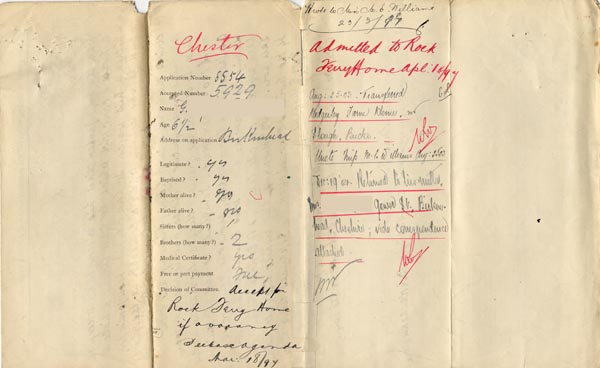 Chester
Application Number 5554
Accepted Number 5929
Name G.
Age 6½
Address on application Birkenhead
Legitimate? yes
Baptised? yes
Mother alive? yes
Father alive? no
Sisters (how many?)
Brothers (how many?) 2
Medical Certificate? yes
Free or part payment Free
Decision of Committee. Accept for
Rock Ferry Home
if a vacancy
See case agenda
Mar. 18/97
Wrote to Miss M. C. Williams
23/3/97
Admitted to Rock
Ferry Home Apl. 10/97
Aug: 25.03. Transferred to
Hedgerley Farm Home, nr
Slough, Bucks.
Wrote Miss M. C. Williams Aug: 25/03
Dec: 19'04. Returned to his mother,
Mrs. Birken-
head, Cheshire; vide correspondence
attached.